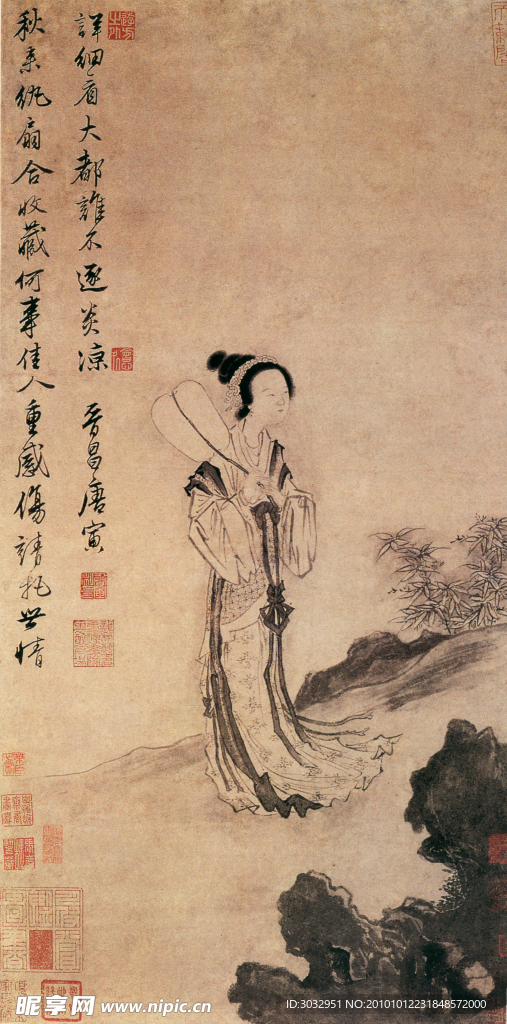 秋来纨扇合收藏何事佳人重感伤請托世情
詳細看大都誰不逐炎凉
晋昌唐寅
昵享网 www.nipic.cn
ID:3032951 NO:20101012231848572000